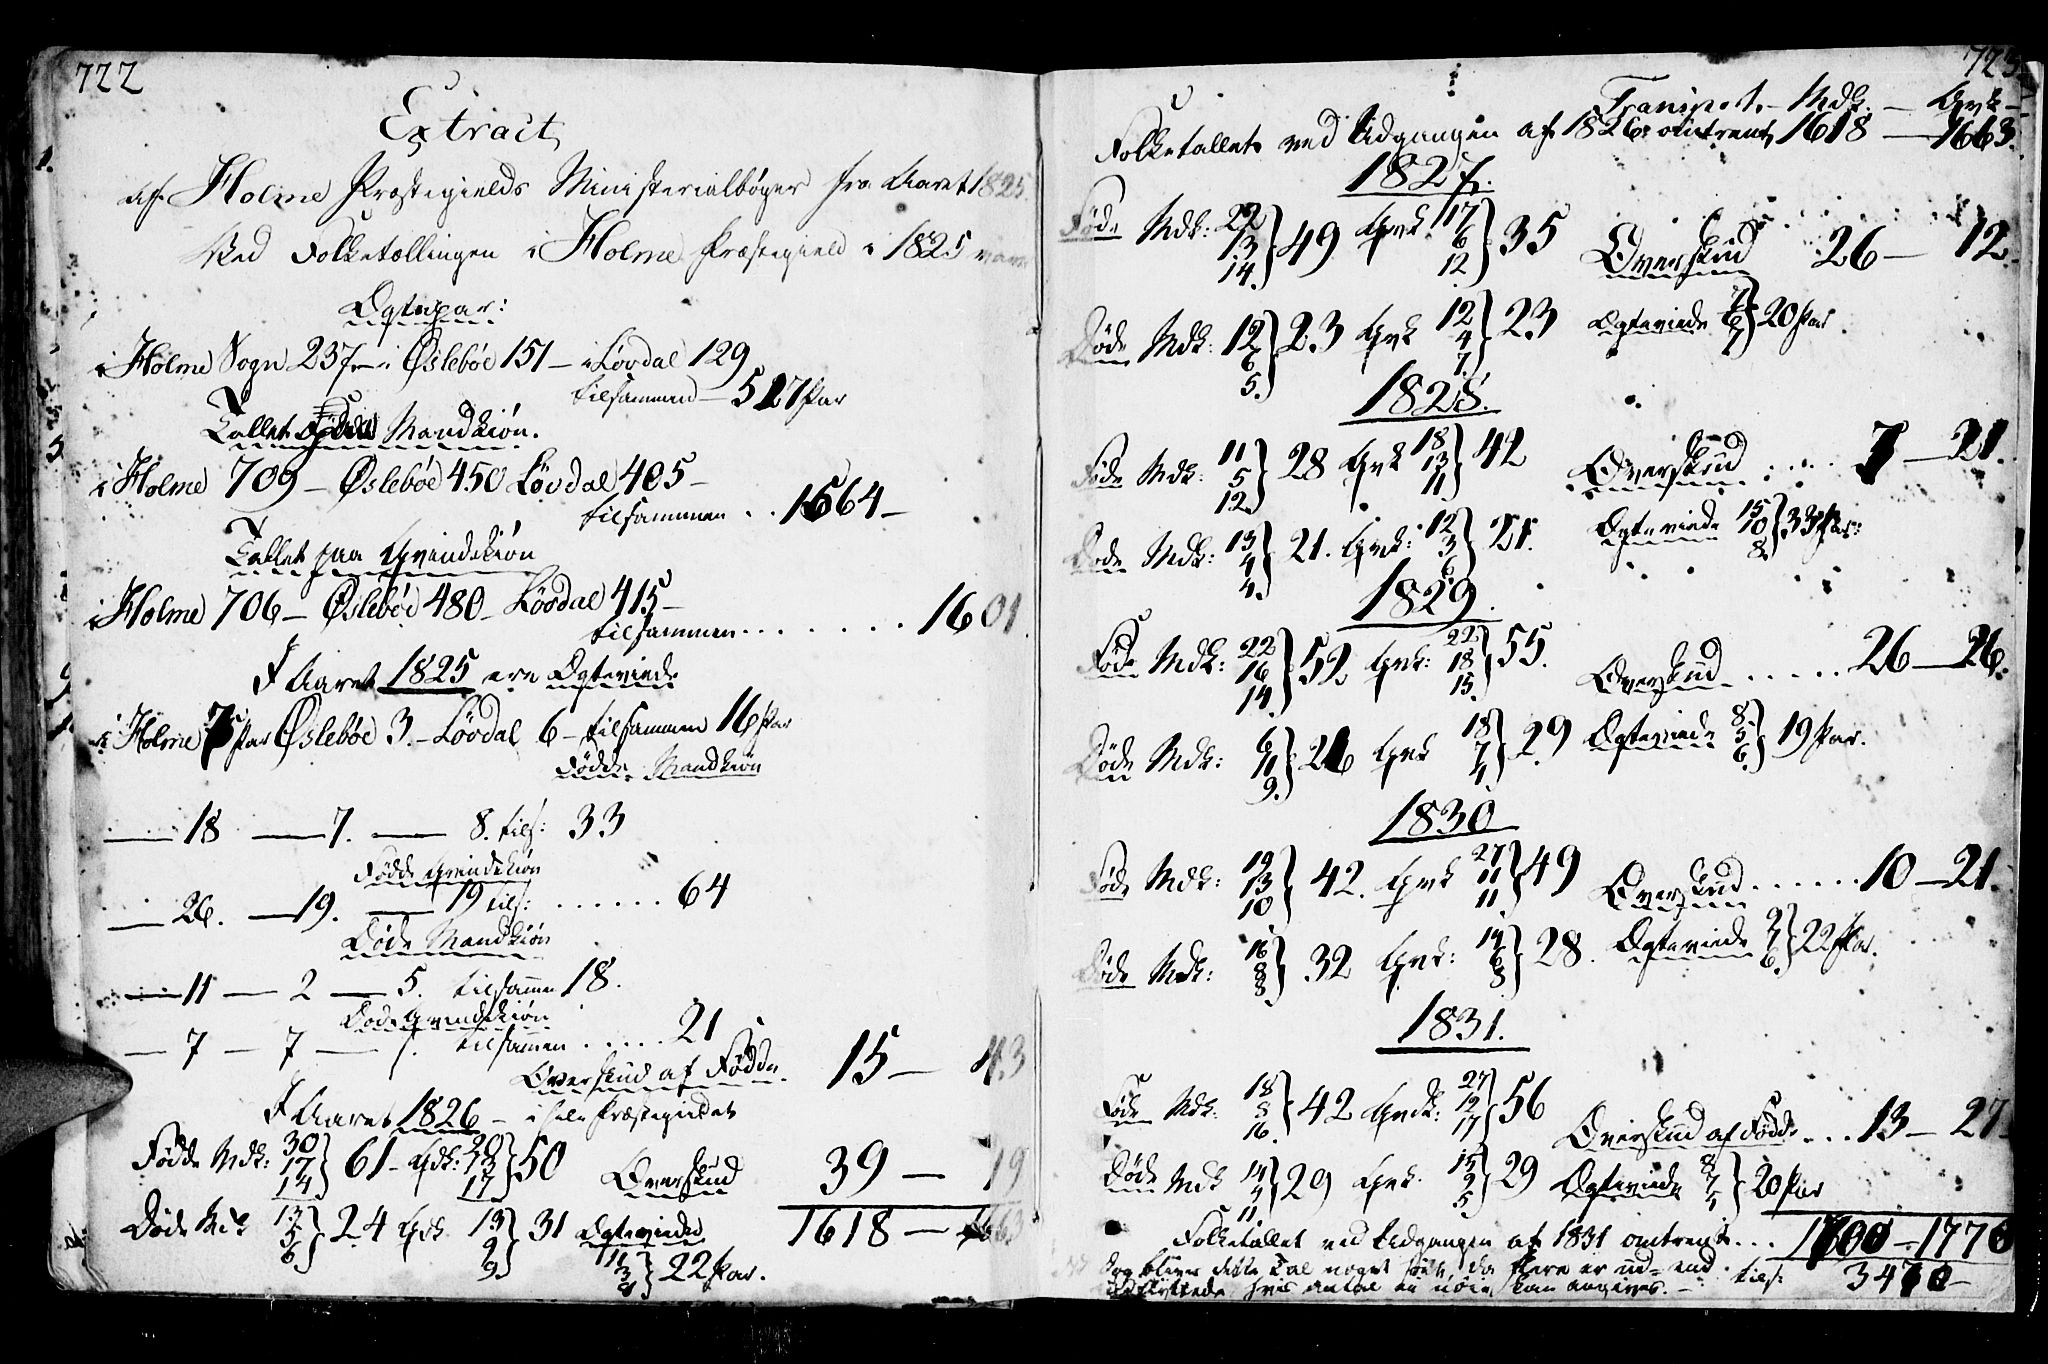 722
Extract
af Holme Præstegields Ministerialbøger fra Aaret 1825
Ved Folketællingen i Holme Præstegield i 1825 vare
Ægtepar:
i Holme Sogn 237 – i Øslebøe 151 – i Løvdal 129
tilsammen – 517 Par
Tallet Mandkiøn.
i Holme 709 – Øslebøe 450 Løvdal 405 –
tilsammen . . 1564 –
Tallet paa Qvindekiøn
i Holme 706 – Øslebøe 480 – Løvdal 415 –
tilsammen . . . . . . . 1601
I Aaret 1825 ere Ægteviede
i Holme 7 Par Øslebøe 3. – Løvdal 6 – tilsammen 16 Par
Fødde Mandkiøn
— 18 — 7. — 8. tils: 33
Fødde Qvindekiøn
— 26. — 19. — 19 tils: . . . . . . 64
Døde Mandkiøn
— 11 — 2 — 5. tilsamen 18.
Døde Qvindekiøn
— 7 — 7 — tilsamen . . . . . 21
Overskud af Fødde. 15 – 43
I Aaret 1826 – i hele Præstegieldet
Fødde Mdk: 30 17 14 } 61 – Qvdk: 20 13 17 } 50 Overskud 39 – 19
Døde Mdk 13 5 6 } 24 Qvdk 13 9 9 } 31 Ægteviede 11 3 8 } 22 Par.
1618 – 1663
723
Transport. – Mdk. – Qvk –
Folketallet ved Udgangen af 1826 omtrent 1618 — 1663.
1827.
Føde Mdk: 22 13 14. } 49 Qvk 17 6 12. } 35 Overskud 26 – 12.
Døde Mdk: 12 6 5. } 23 Qvk 12 4 7. } 23 Ægteviede 7 6 7 } 20 Par.
1828.
Føde Mdk: 11 5 12. } 28 Qvk 18 13 11 } 42 Overskud . . . . 7 – 21.
Døde Mdk: 13 4 4. } 21. Qvk: 12 3 6 } 21. Ægteviede 15 10 8. } 33 Par:
1829.
Føde Mdk: 22 16 14. } 52 Qvk: 22 18 15. } 55. Overskud . . . . . 26 – 26.
Døde Mdk: 6 11 9. } 26 Qvk 18 7 4 } 29 Ægteviede 8. 5 6. } 19 Par.
1830
Føde Mdk: 19 13 10 } 42. Qvk 27 11 11. } 49 Overskud . . . . . . 10 – 21.
Døde Mdk: 16 8 8 } 32 Qvk: 14 6 8 } 28. Ægteviede 9 7 6. } 22 Par.
1831.
Føde Mdk: 18 8 16. } 42 Qvdk: 27 12 17 } 56 Overskud af Fødde . . . 13 – 27
Døde Mdk 14 4 11 } 29 Qvk. 15 9 5 } 29 Ægteviede 8 7 5 } 20 Par
Folketallet ved Udgangen af 1831 omtrent . . . 1700 – 1770
Dog bliver dette Tal noget da flere er ud- end
indflyttede hvis Antal ei nøie kan angives. – tils: 3470 –